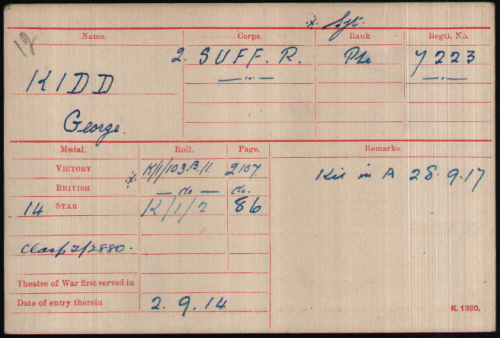 * Sgt.
Name. Corps. Rank Regtl. No.
19
2. SUFF. R. Pte 7223
KIDD — " — — " —
George.
Medal. Roll. Page. Remarks.
VICTORY * K/1/103.B.11 2107. Kil in A 28.9.17
BRITISH — do — do.
14 STAR K/1/2 86
Clasp 2/2880.
Theatre of War first served in
Date of entry therein 2.9.14
K. 1380.